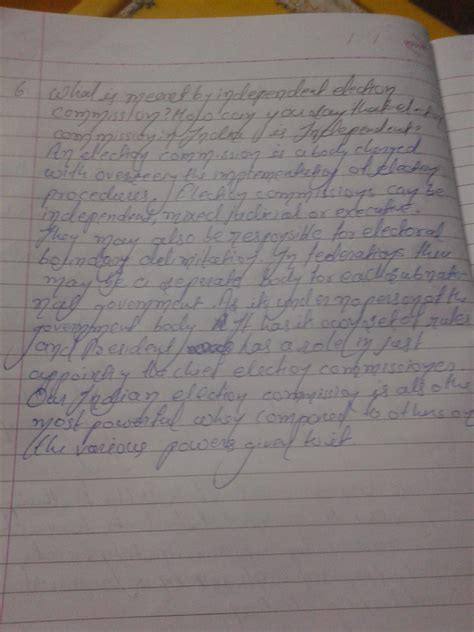 6 What is meant by independent election
commission? How can you say that election
commission in India is Independent?
An election commission is a body charged
with overseeing the implementation of election
procedures. Election commissions can be
independent, mixed, judicial or executive.
They may also be responsible for electoral
boundary delimitation. In federations there
may be a separate body for each subnatio
nal government. As it is under no person of the
government body. It has its own set of rules
and President has a role in just
appointing the chief election commissioner.
Our Indian election commission is also the
most powerful when compared to others on
the various powers given to it.